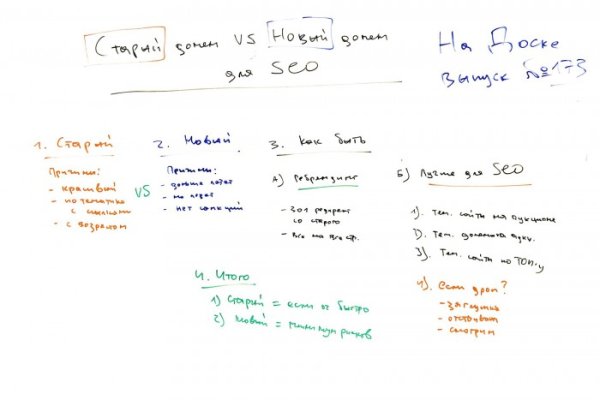 Старый домен VS Новый домен
для SEO
На Доске
выпуск №173
1. Старый
Причины:
- красивый
- по тематике
с ссылками
- с возрастом
VS
2. Новый
Причины:
- дольше
- нет санкций
3. Как быть
А) Ребрендинг
- 301 редирект
со старого
- Все на все стр.
Б) Лучше для SEO
1). Тем. сайты на аукционе
2). Тем. домена аукц.
3). Тем. сайты по ТОП-у
4). если дроп?
- заглушка
- отстаивам
- смотрим
4. Итого
1) Старый = если от быстро
2) Новый = минимум рисков